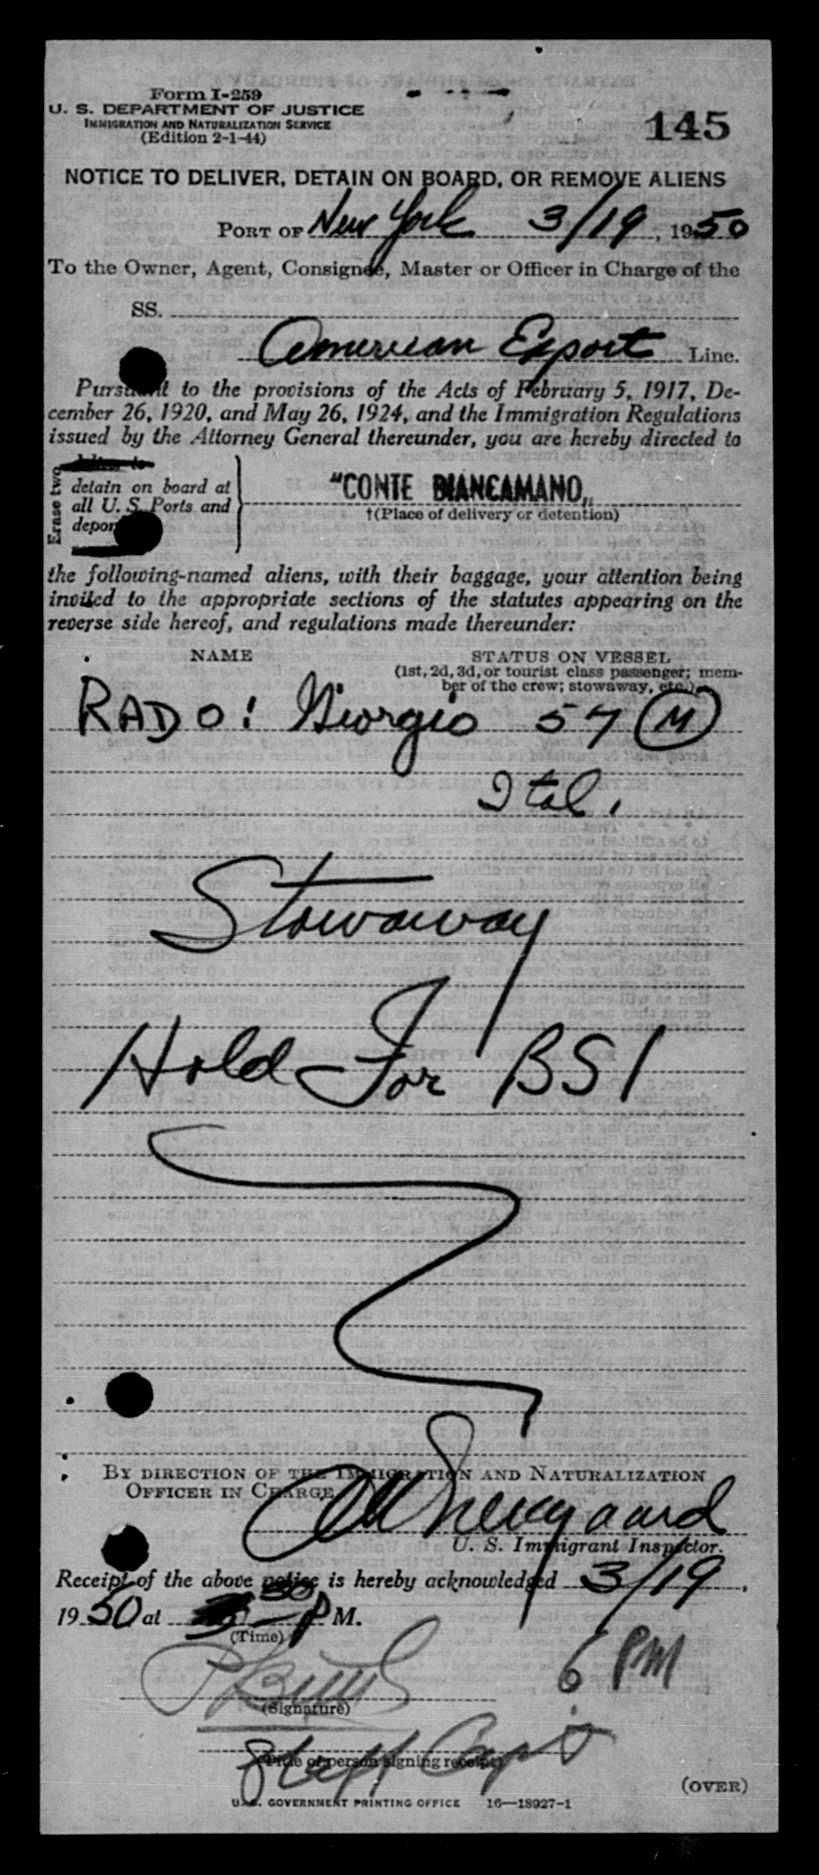 Form I-259
U. S. DEPARTMENT OF JUSTICE
IMMIGRATION AND NATURALIZATION SERVICE
(Edition 2-1-44)
145
NOTICE TO DELIVER, DETAIN ON BOARD, OR REMOVE ALIENS
PORT OF New York 3/19, 1950
To the Owner, Agent, Consignee, Master or Officer in Charge of the
SS.
American Export Line.
Pursuant to the provisions of the Acts of February 5, 1917, De-
cember 26, 1920, and May 26, 1924, and the Immigration Regulations
issued by the Attorney General thereunder, you are hereby directed to
Erase two
detain on board at
all U. S. Ports and
depor
"CONTE BIANCAMANO"
†(Place of delivery or detention)
the following-named aliens, with their baggage, your attention being
invited to the appropriate sections of the statutes appearing on the
reverse side hereof, and regulations made thereunder:
NAME
STATUS ON VESSEL
(1st, 2d, 3d, or tourist class passenger; mem-
ber of the crew; stowaway, etc.)
RADO: Giorgio 57 M
Ital.
Stowaway
Hold For BSI
BY DIRECTION OF THE IMMIGRATION AND NATURALIZATION
OFFICER IN CHARGE
U. S. Immigrant Inspector.
Receipt of the above notice is hereby acknowledged 3/19,
1950 at 30 PM.
(Time)
6 PM
(Signature)
Staff Capt
(Title of person signing receipt)
(OVER)
U. S. GOVERNMENT PRINTING OFFICE 16—18927-1